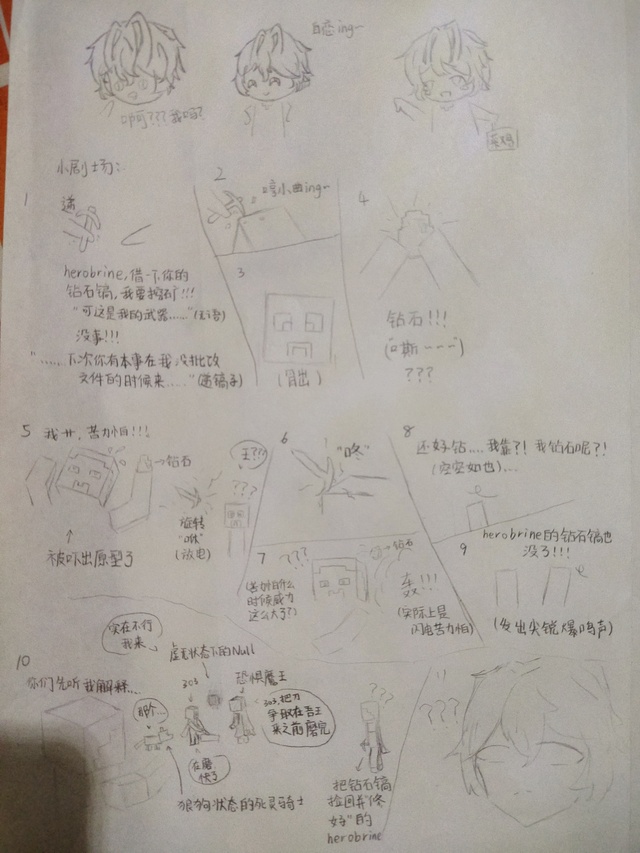 自恋ing~
啊???我吗?
小剧场:
1
2
哼小曲ing~
herobrine,借一下你的
钻石镐,我要挖矿!!!
"可这是我的武器……"(无语)
没事!!!
"……下次你有本事在我没批改
文件的时候来……"(递镐子)
3
(冒出)
4
钻石!!!
("嘶~~~~")
???
5
我 艹,苦力怕!!!
→钻石
被吓出原型了
旋转
"咻"
(放电)
王???
???
6
"咚"
7
???
→钻石
(苦力怕什么
时候威力
这么大了?)
轰!!!
(实际上是
闪电苦力怕)
8
还好钻....我靠?!我钻石呢?!
(空空如也)...
9
herobrine的钻石镐也
没了!!!
(发出尖锐爆鸣声)
10
你们先听我解释...
实在不行
我来
虚无状态下的Null
303
恐惧魔王
303,把刀
争取在吾王
来之前磨完
那个...
在磨
快了
狼狗状态的死灵骑士
???
把钻石镐
捡回并"修
好"的
herobrine
11
???